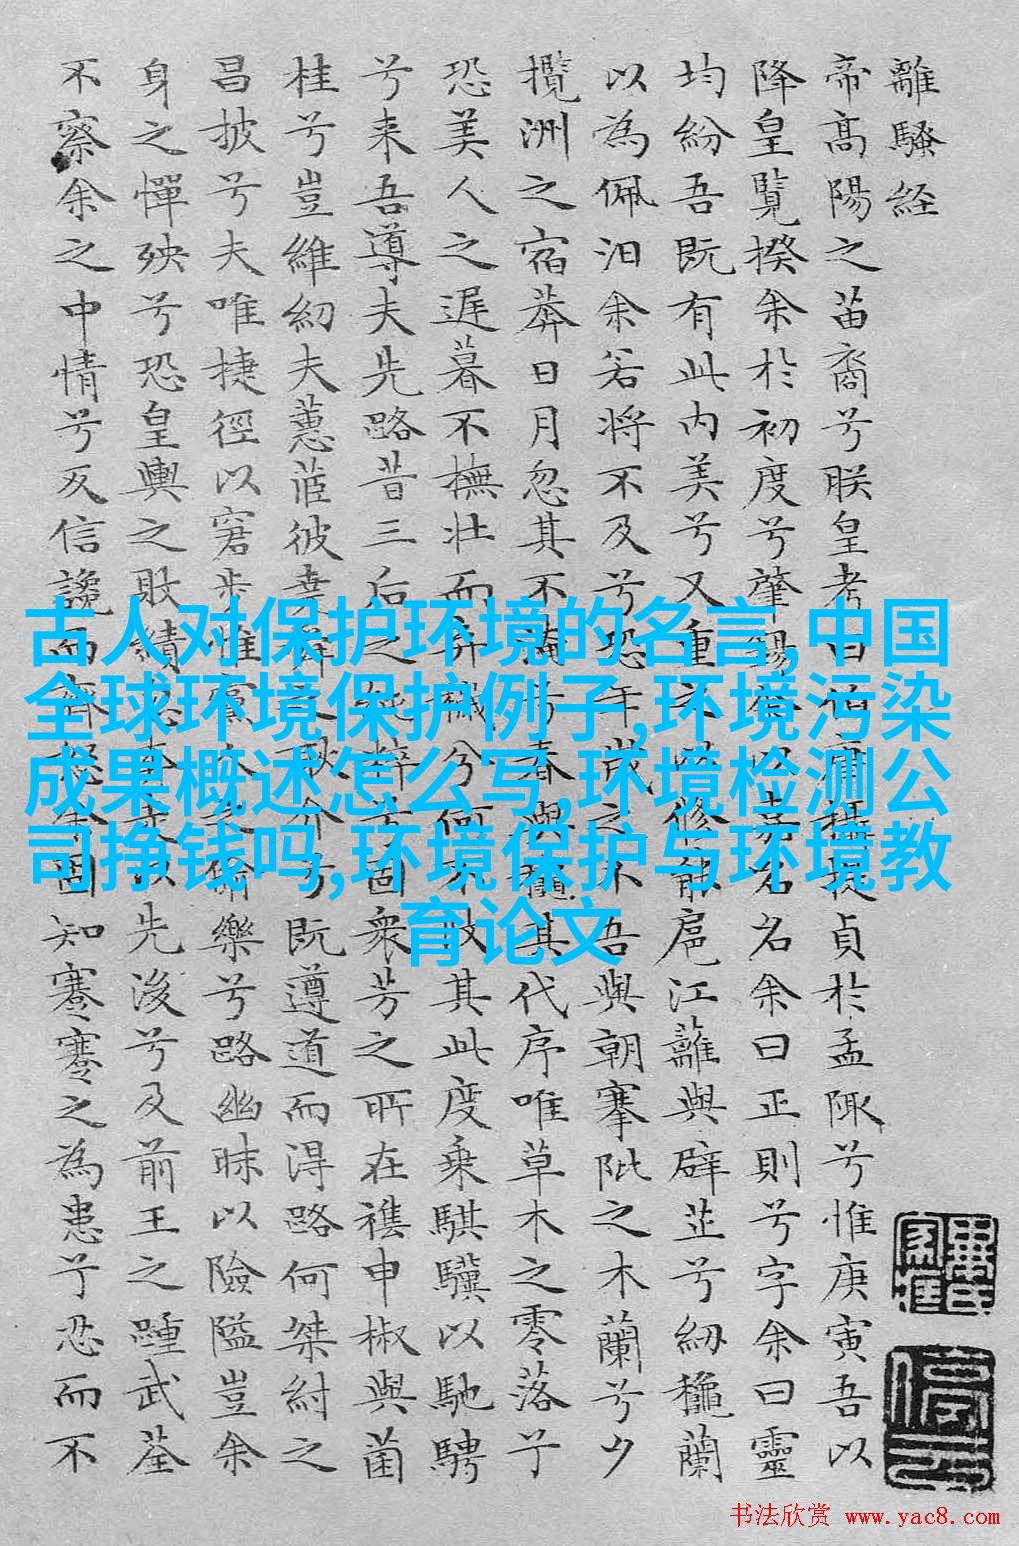 離騷経
帝高陽之苗裔兮朕皇考曰伯庸攝提貞於孟陬兮惟庚寅吾以
降皇覽揆余於初度兮肇錫余以嘉名名余曰正則兮字余曰靈
均紛吾既有此内美兮又重之以修能扈江蘺與辟芷兮紉龝蘭
以為佩汩余若將不及兮恐年歲之不吾與朝搴阰之木蘭兮夕
攬洲之宿莽日月忽其不掩兮春與龝其代序唯草木之零落兮
恐美人之遲暮不撫壯而弃穢兮何不改其此度乘騏驥以馳騁
兮来吾導夫先路昔三后之純粹兮固衆芳之所在襍申椒與菌
桂兮豈維紉夫蕙茝彼堯舜之耿介兮既遵道而得路何桀紂之
昌披兮夫唯捷徑以窘步惟黨人之偷樂兮路幽昧以險隘豈余
身之憚殃兮恐皇輿之敗績忽奔走以先後兮及前王之踵武荃
不察余之中情兮反信讒而齊怒余固知謇謇之為患兮忍而不
古人对保护环境的名言,中国
全球环境保护例子,环境污染
成果概述怎么写,环境检测公
司挣钱吗,环境保护与环境教
育论文
书法欣赏 www.yac8.com